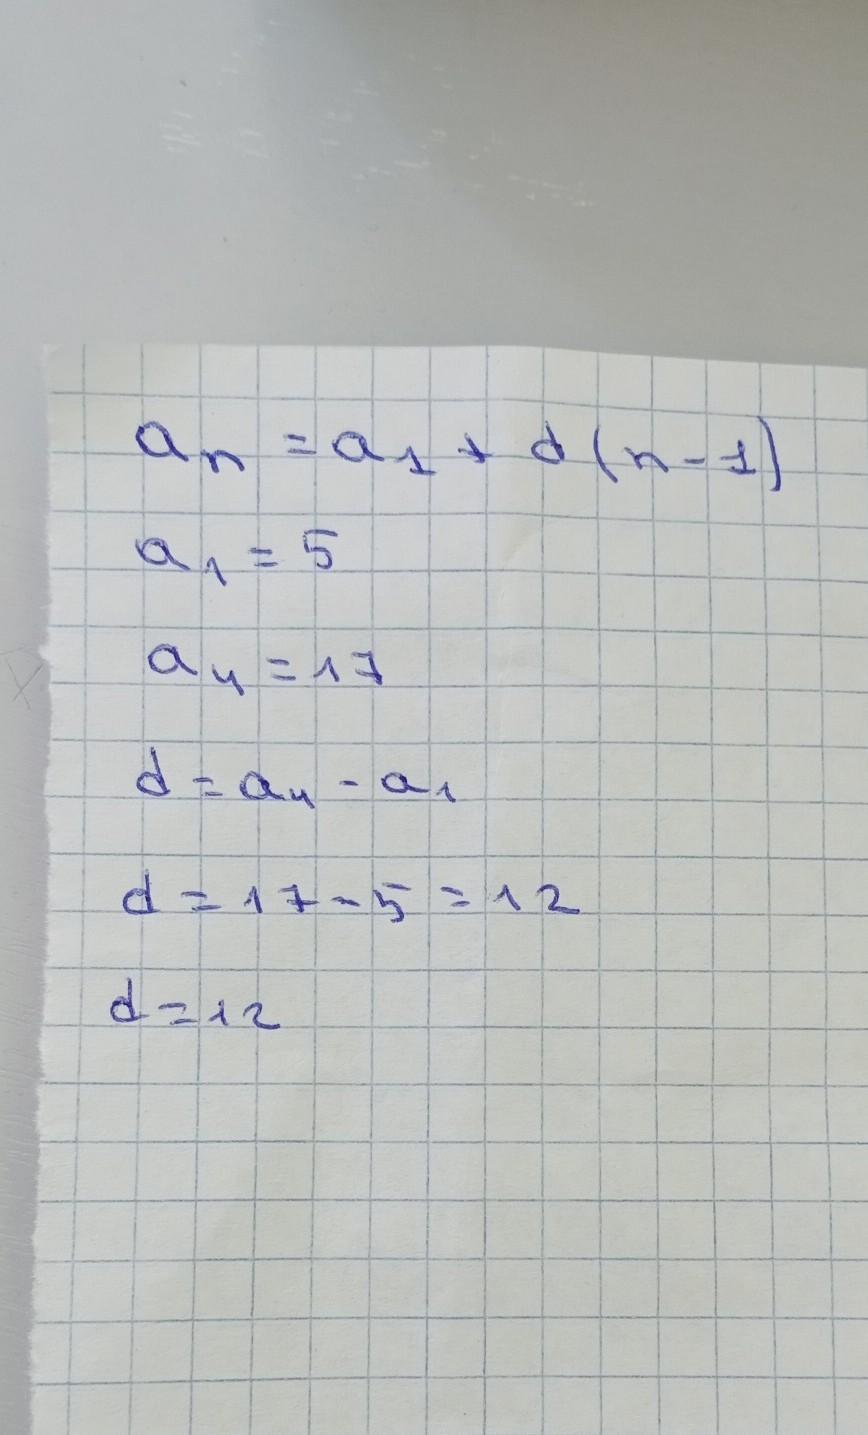 aₙ = a₁ + d(n-1)
a₁ = 5
a₄ = 17
d = a₄ - a₁
d = 17 - 5 = 12
d = 12